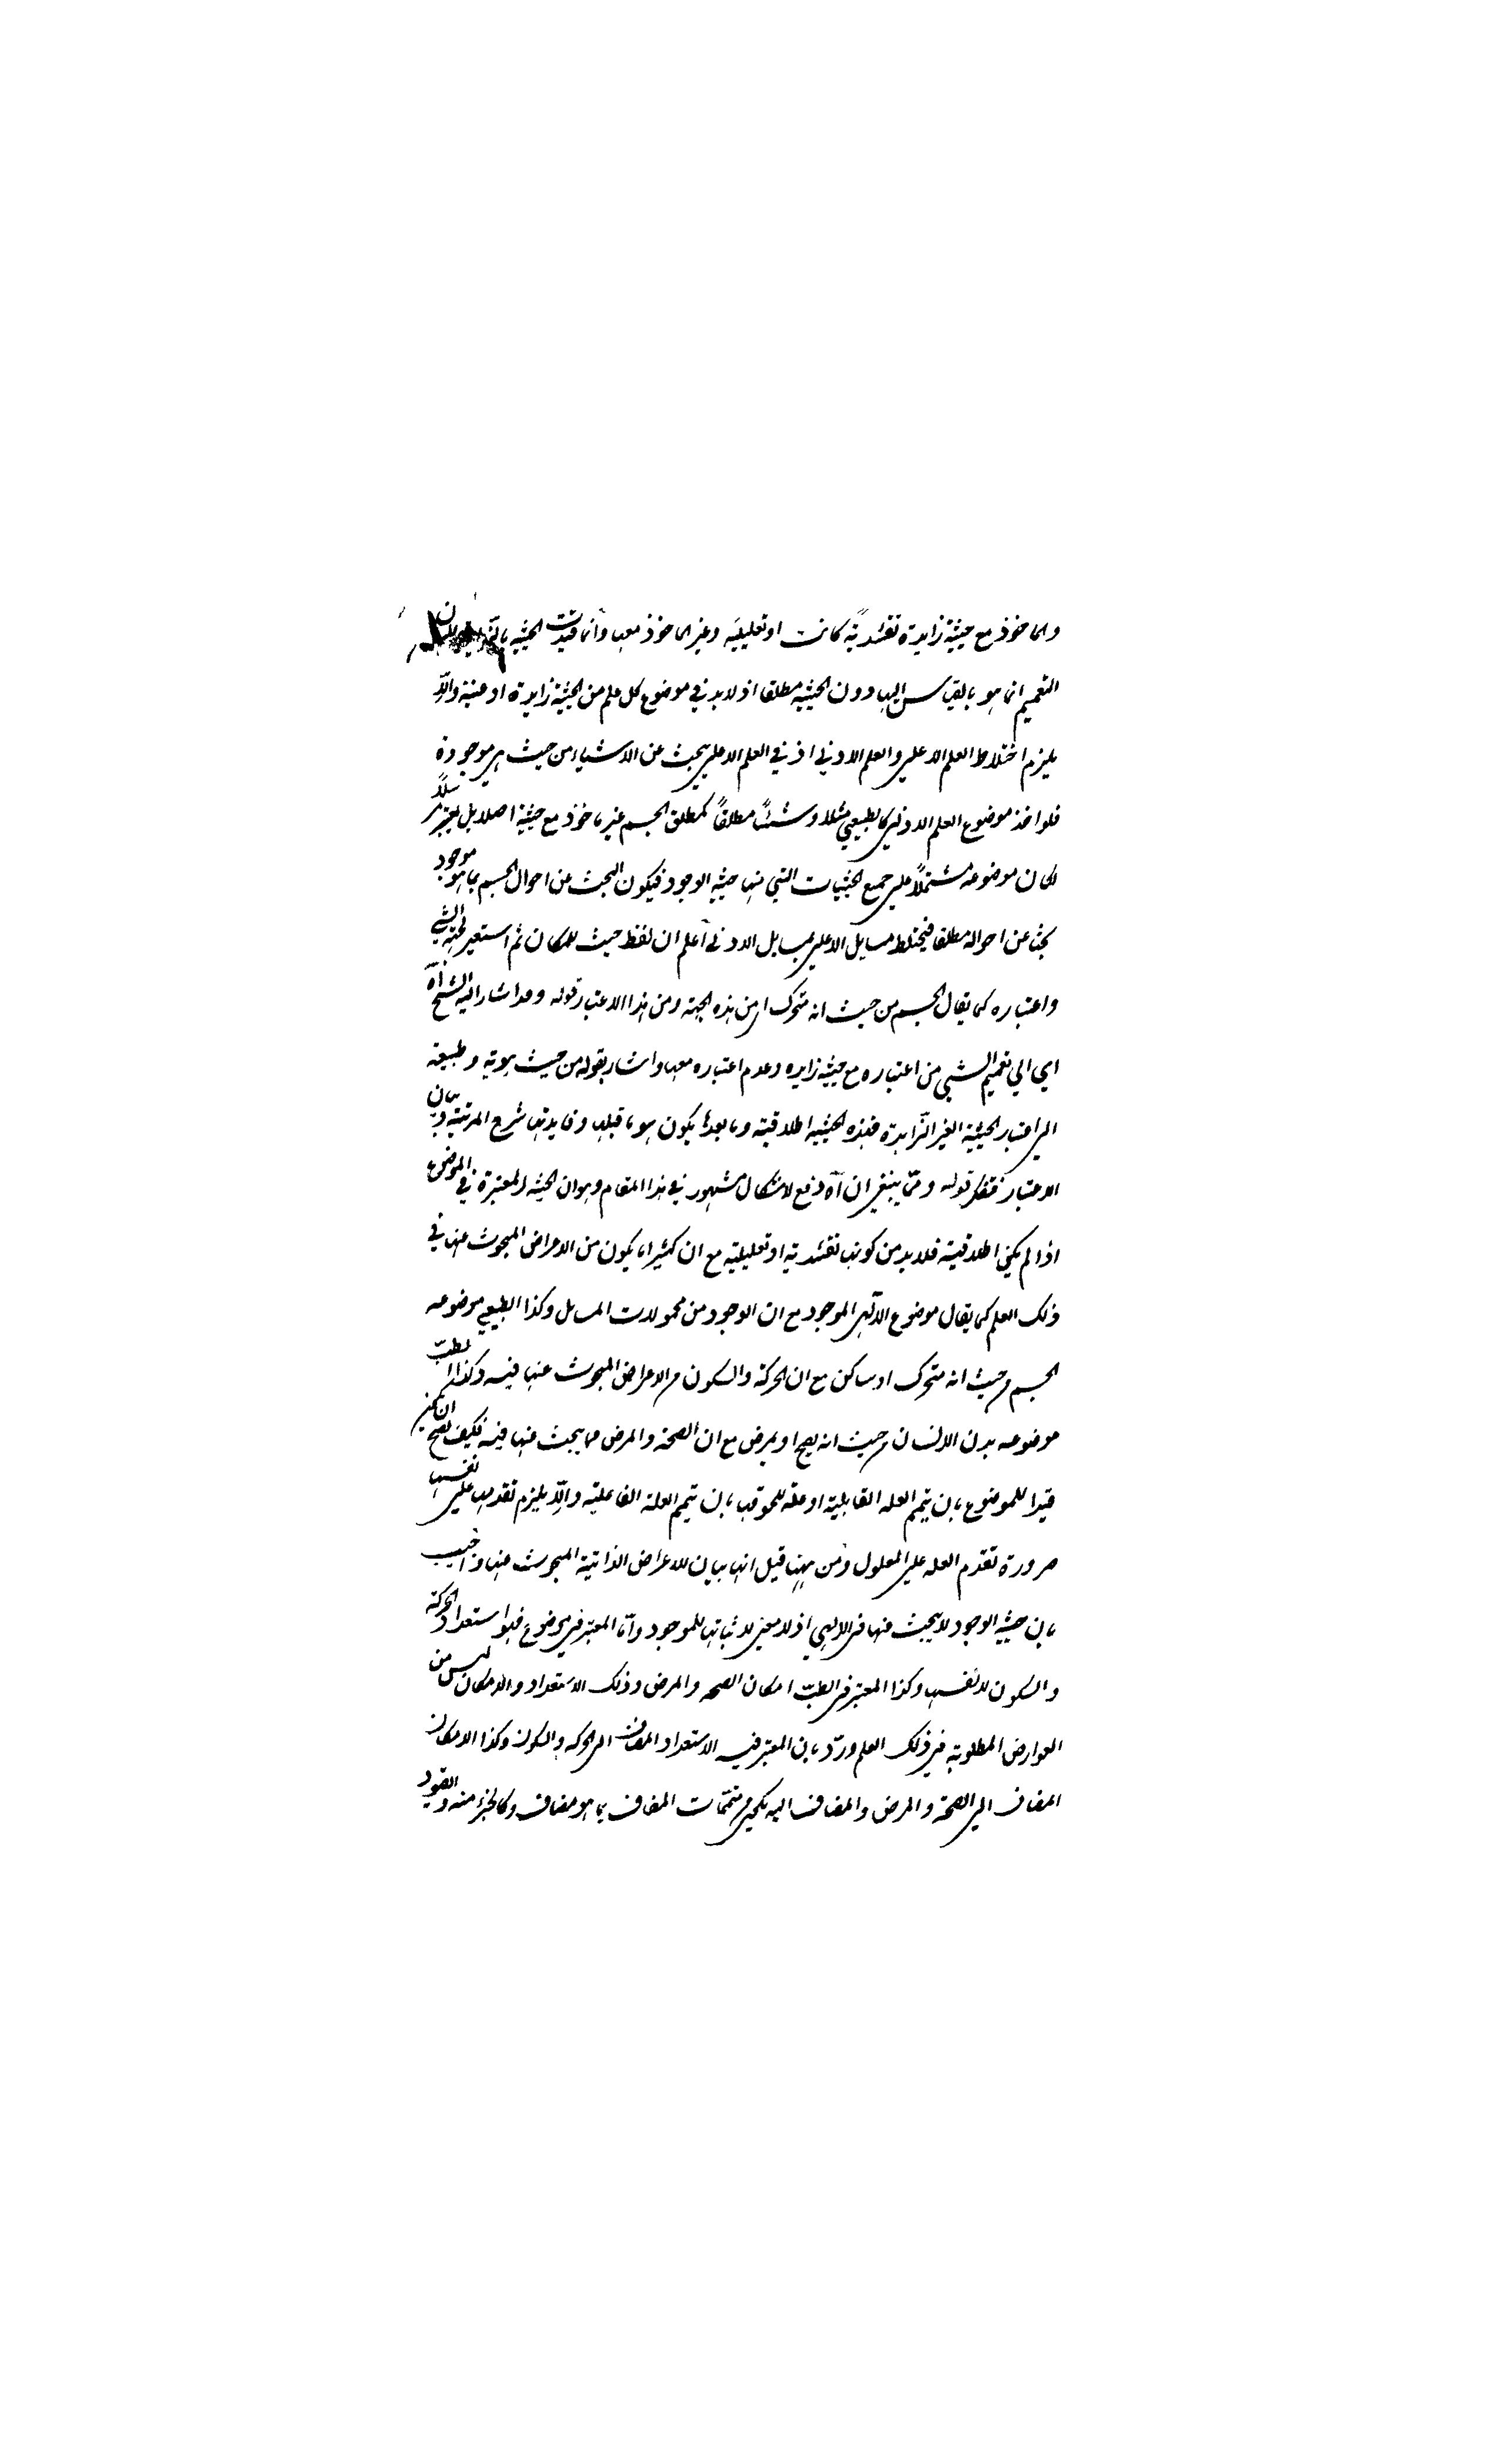 والماخوذ مع حيثية زايدة تقئدية كانت او تعليلية وغير الماخوذ معها وانما قيدت الحيثية بالزايدة لان
التعميم انما هو بالقياس اليها دون الحيثية مطلقا اذ لابد في موضوع كل علم من الحيثية زايدة او عينية والا
يلزم اختلاط العلم الاعلى والعلم الادنى اذ في العلم الاعلى يبحث عن الاشياء من حيث هي موجودة
فلو اخذ موضوع العلم الادنى كالطبيعي مثلا وشئًا مطلقًا كمطلق الجسم غير ماخوذ مع حيثية اصلا بل يعتبر
لكان موضوعه مشتملًا على جميع الحيثيات التي منها حيثية الوجود فيكون البحث عن احوال الجسم بما هو موجود
بحثا عن احواله مطلقا فيختلط مسايل الاعلى بمسايل الادنى اعلم ان لفظ حيث للمكان ثم استعير لجهة الشي
واعتباره كما يقال الجسم من حيث انه متحرك اي من هذه الجهة ومن هذا الاعتبار قوله وقد اشار اليه الشيخ آه
اي الى تعميم الشي من اعتباره مع حيثية زايدة وعدم اعتباره معها واشار بقوله من حيث هويته وطبيعته
الى اعتبار الحيثية الغير الزايدة فهذه الحيثية اطلاقية وما بعدها يكون هو ما قبلها وفايدتها شرح المرتبة وبيان
الاعتبار فتفكر قوله وممّا ينبغي ان آه دفع لاشكال مشهور في هذا المقام وهو ان الحيثية المعتبرة في الموضوع
اذا لم يكن اطلاقية فلابد من كونها تقئدية او تعليلية مع ان كثيرا ما يكون من الاعراض المبحوث عنها في
ذلك العلم كما يقال موضوع الالهي الموجود مع ان الوجود من محمولات المسايل وكذا الطبيعي موضوعه
الجسم من حيث انه متحرك او ساكن مع ان الحركة والسكون من الاعراض المبحوث عنها فيه وكذا الطب
موضوعه بدن الانسان من حيث انه يصح او يمرض مع ان الصحة والمرض مما يبحث عنها فيه فكيف يصح ان يكون
قيدا للموضوع بان يتمم العلة القابلية او علة للحوقها بان تتمم العلة الفاعلية والا يلزم تقدمها على نفسها
ضرورة تقدم العلة على المعلول ومن ههنا قيل انها بيان للاعراض الذاتية المبحوث عنها واجيب
بان حيثية الوجود لا يبحث عنها في الالهي اذ لا معنى لاثباتها للموجود وامّا المعتبر في موضوع فهو استعداد الحركة
والسكون لا نفسها وكذا المعتبر في الطبّ امكان الصحة والمرض وذلك الاستعداد والامكان ليس من
العوارض المطلوبة في ذلك العلم وردّ بان المعتبر فيه الاستعداد المضاف الى الحركة والسكون وكذا الامكان
المضاف الى الصحة والمرض والمضاف اليه يكون من متممات المضاف بما هو مضاف وكالجزء منه والقيود